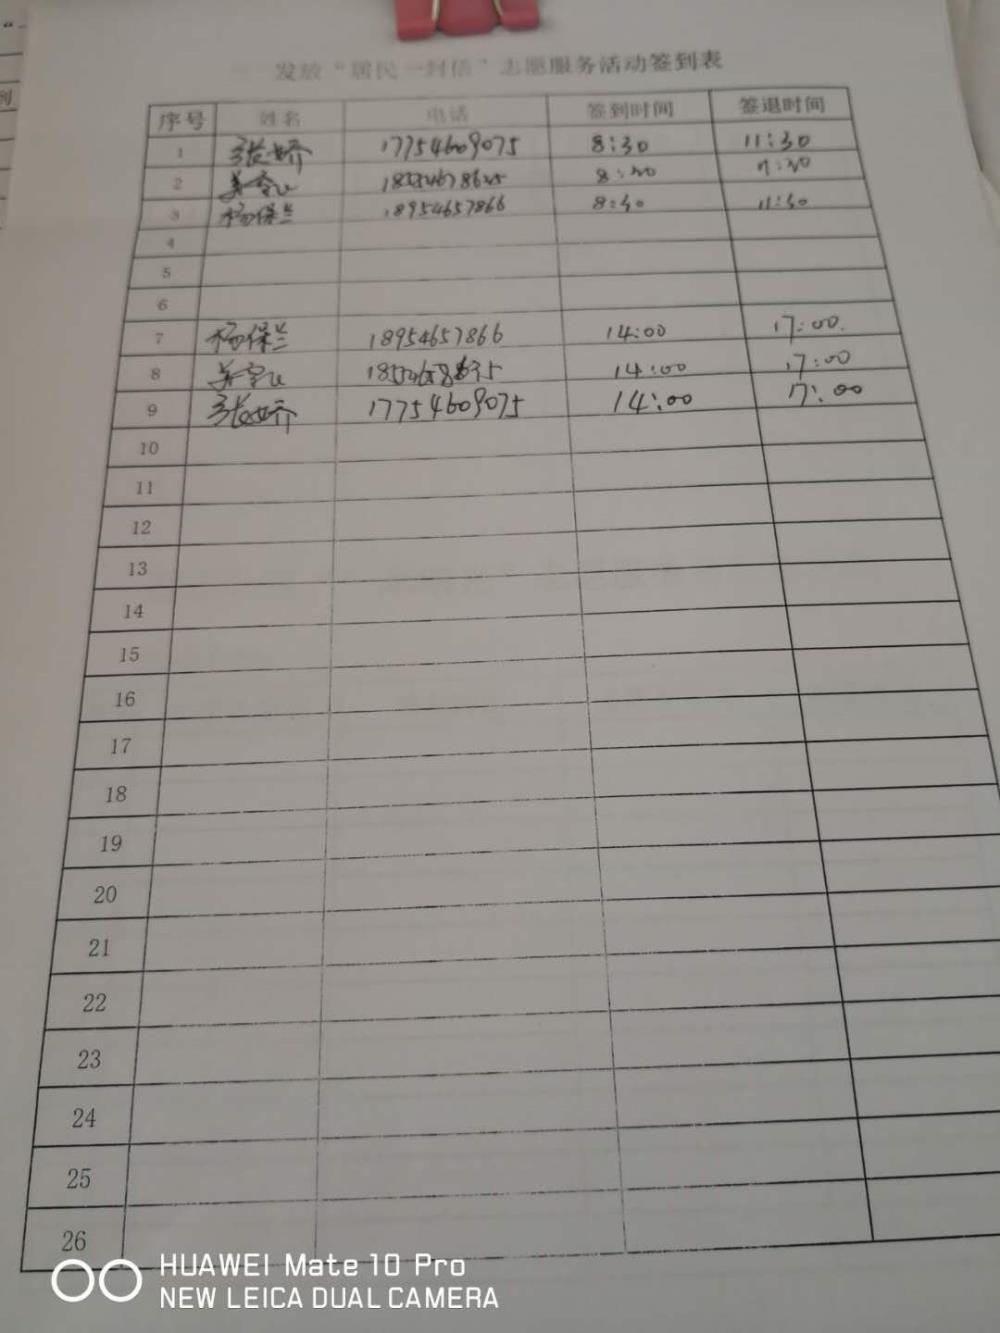 发放“居民一封信”志愿服务活动签到表
序号 姓名 电话 签到时间 签退时间
1 张娇 17754609075 8:30 11:30
2 8:30 11:30
3 杨保兰 18954657866 8:30 11:30
4
5
6
7 杨保兰 18954657866 14:00 17:00.
8 14:00 17:00
9 张娇 17754609075 14:00 17:00
10
11
12
13
14
15
16
17
18
19
20
21
22
23
24
25
26
HUAWEI Mate 10 Pro
NEW LEICA DUAL CAMERA